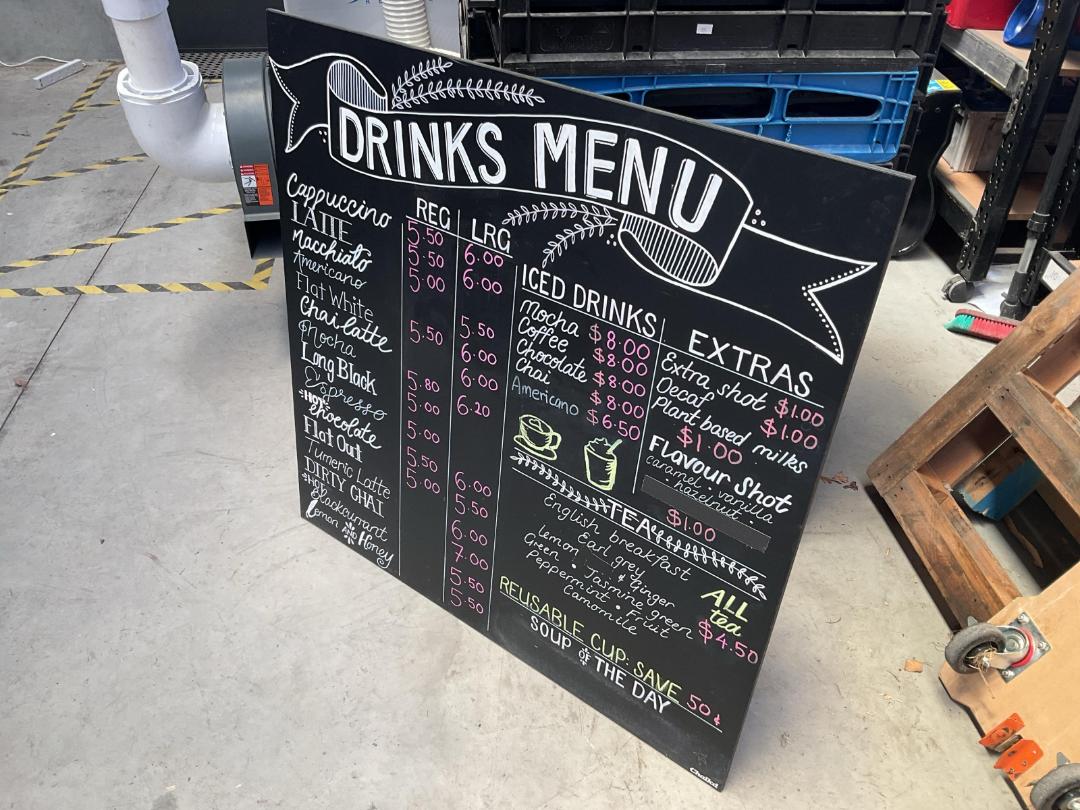 DRINKS MENU
Cappuccino
LATTE
Macchiato
Americano
Flat White
Chai latte
Mocha
Long Black
Espresso
HOT
Chocolate
Flat Out
Tumeric Latte
DIRTY CHAI
HOT
Blackcurrant
Lemon AND Honey
REG
5.50
5.50
5.00
5.50
5.80
5.00
5.00
5.50
5.00
LRG
6.00
6.00
5.50
6.00
6.00
6.20
6.00
5.50
6.00
7.00
5.50
5.50
ICED DRINKS
Mocha $8.00
Coffee $8.00
Chocolate $8.00
Chai $8.00
Americano $6.50
EXTRAS
Extra shot $1.00
Decaf $1.00
Plant based milks
$1.00
FLAVOUR Shot
caramel · vanilla
· hazelnut ·
$1.00
TEA
English breakfast
Earl grey
Lemon & Ginger
Green · Jasmine green
Peppermint · Fruit
Camomile
ALL
tea
$4.50
REUSABLE CUP: SAVE 50¢
SOUP OF THE DAY